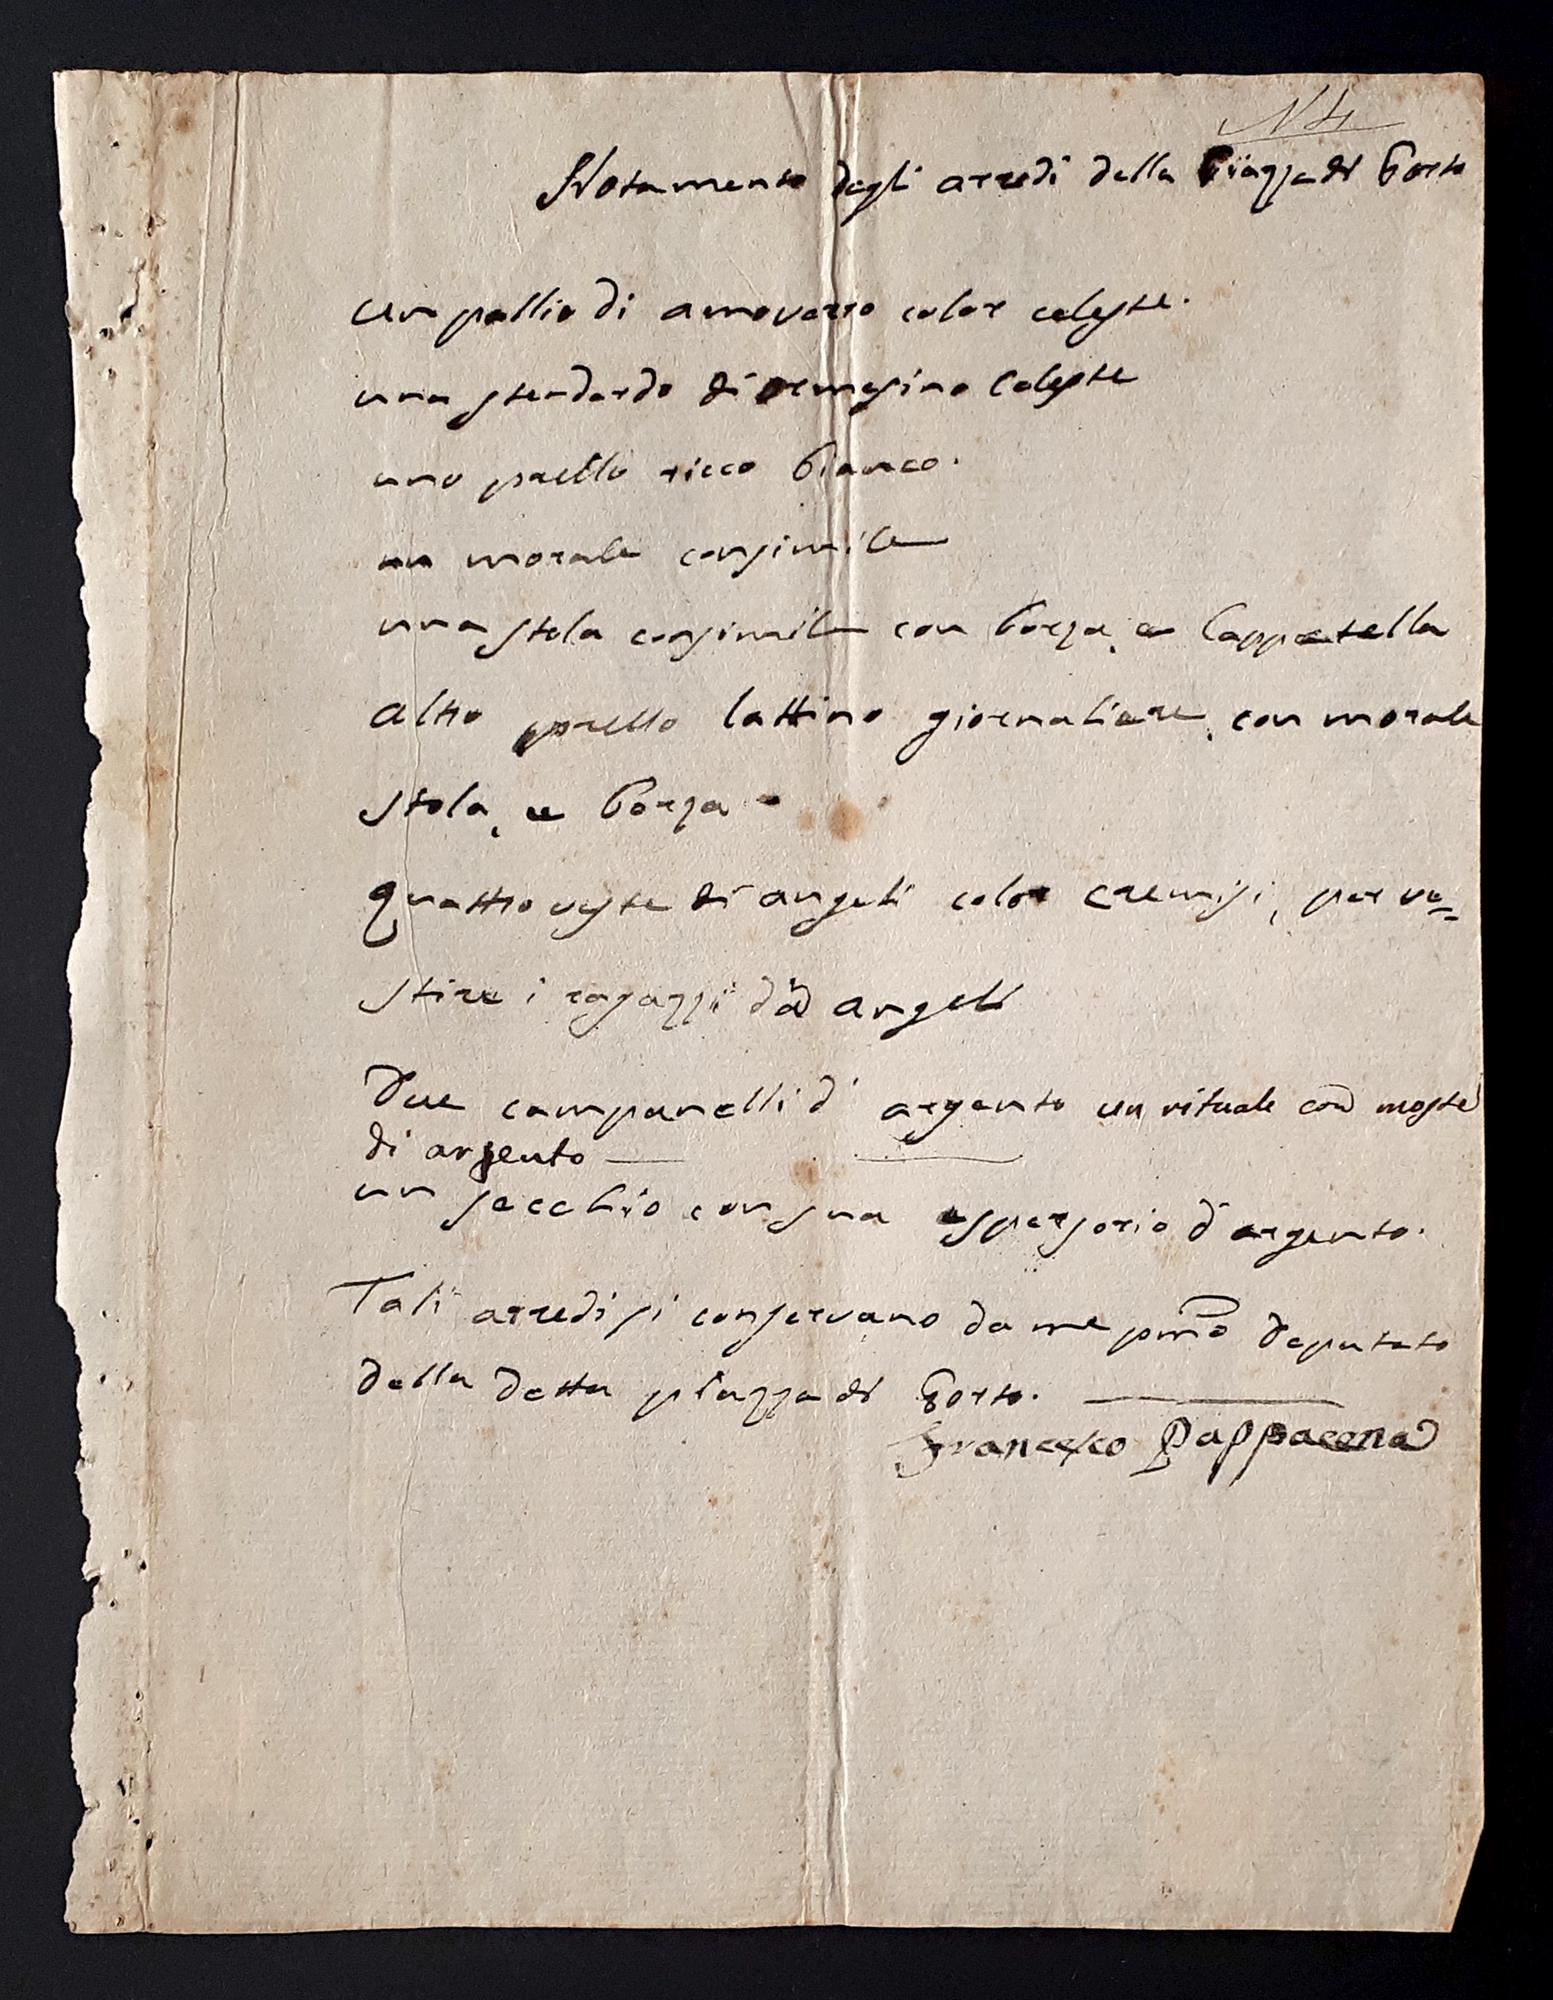 N 4
Notamento degli arredi della Piazza di Porto
un pallio di amoverro color celeste.
una stendardo di ormesino Celeste
uno ricco bianco.
un morale consimile
una stola consimile con borza, e Cappetella
altro lattino giornaliere, con morale
stola, e borza
quattro veste di angeli color cremisi, per ve=
stire i ragazzi da angeli
Due campanelli d' argento un rituale con moste
di argento
un secchio con sua aspersorio d' argento.
Tali arredi si conservano da me pmo deputato
della detta piazza di Porto.
Francesco Pappacena